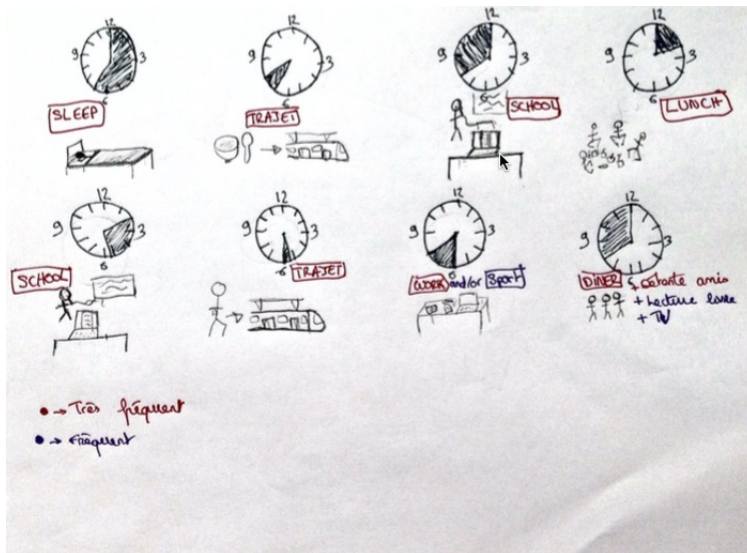 12
9 3
6
SLEEP
12
9 3
6
TRAJET
12
9 3
6
SCHOOL
12
9 3
6
LUNCH
12
9 3
6
SCHOOL
12
9 3
6
TRAJET
12
9 3
6
WORK and/or Sport
12
9 3
6
DINER + détente amis
+ Lecture livre
+ TV
→ Très fréquent
→ Fréquent